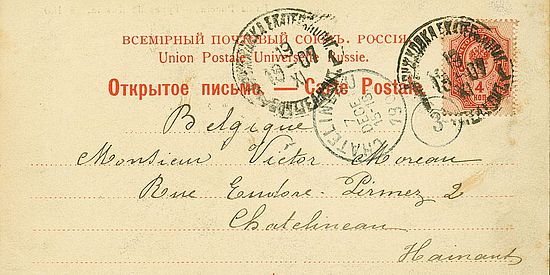 ВСЕМІРНЫЙ ПОЧТОВЫЙ СОЮЗЪ. РОССІЯ
Union Postale Universelle Russie.
Открытое письмо — Carte Postale
CHATELINEAU
7
DECE
4
КОП
3
Belgique
Monsieur Victor Moreau
Rue Emdore-Pirmez 2
Chatelineau
Hainaut